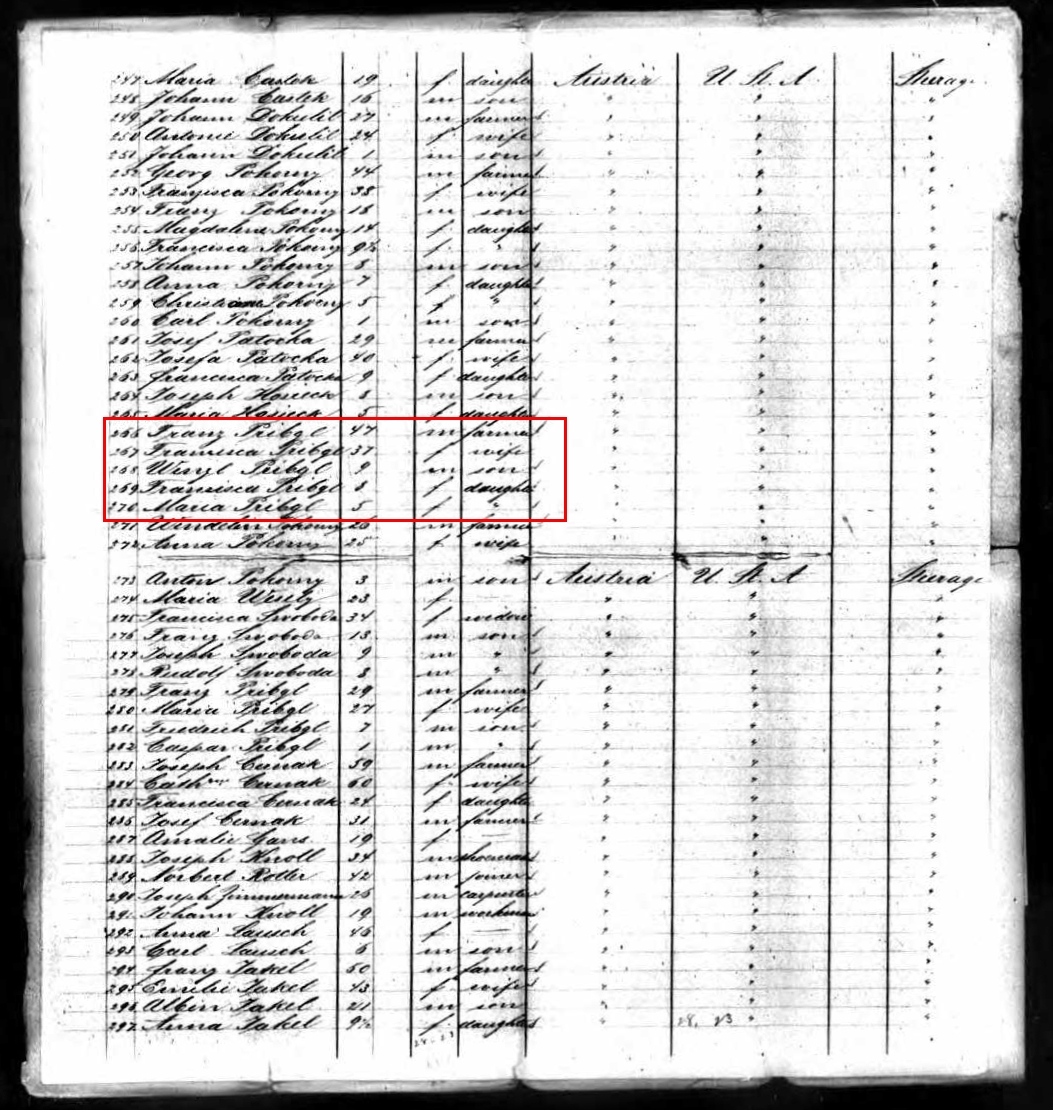 247 Maria Castek 19 f daughter Austria U. St. A Steerage
248 Johann Castek 16 m son " " "
249 Johann Dokulil 27 m farmer " " "
250 Antonie Dokulil 24 f wife " " "
251 Johann Dokulil 1 m son " " "
252 Georg Pokorny 44 m farmer " " "
253 Franzisca Pokorny 38 f wife " " "
254 Franz Pokorny 18 m son " " "
255 Magdalena Pokorny 14 f daughter " " "
256 Francisca Pokorny 9½ f " " " "
257 Johann Pokorny 8 m son " " "
258 Anna Pokorny 7 f daughter " " "
259 Pokorny 5 f " " " "
260 Carl Pokorny 1 m son " " "
261 Josef Patocka 29 m farmer " " "
262 Josefa Patocka 40 f wife " " "
263 Francisca Patocka 9 f daughter " " "
264 Joseph 8 m son " " "
265 Maria 5 f daughter " " "
266 Franz Pribyl 47 m farmer " " "
267 Francisca Pribyl 37 f wife " " "
268 Wenzl Pribyl 9 m son " " "
269 Francisca Pribyl 8 f daughter " " "
270 Maria Pribyl 5 f " " " "
271 Wendelin Pokorny 26 m farmer " " "
272 Anna Pokorny 25 f wife " " "
273 Anton Pokorny 3 m son Austria U. St. A Steerage
274 Maria Wesely 23 f " " "
275 Francisca Swoboda 34 f widow " " "
276 Franz Swoboda 13 m son " " "
277 Joseph Swoboda 9 m " " " "
278 Rudolf Swoboda 8 m " " " "
279 Franz Pribyl 29 m farmer " " "
280 Maria Pribyl 27 f wife " " "
281 Friedrich Pribyl 7 m son " " "
282 Caspar Pribyl 1 m " " " "
283 Joseph Cernak 59 m farmer " " "
284 Cath. Cernak 60 f wife " " "
285 Francisca Cernak 24 f daughter " " "
286 Josef Cernak 31 m farmer " " "
287 Amalie Gans 19 f — " " "
288 Joseph Knoll 34 m shoemak " " "
289 Norbert Rotter 42 m joiner " " "
290 Joseph Zimmermann 26 m carpenter " " "
291 Johann Knoll 19 m workman " " "
292 Anna Lausch 46 f — " " "
293 Carl Lausch 6 m son " " "
294 Franz Jakel 50 m farmer " " "
295 Emilie Jakel 43 f wife " " "
296 Albin Jakel 21 m son " " "
297 Anna Jakel 9½ f daughter " 28. 23 " "
28. 23